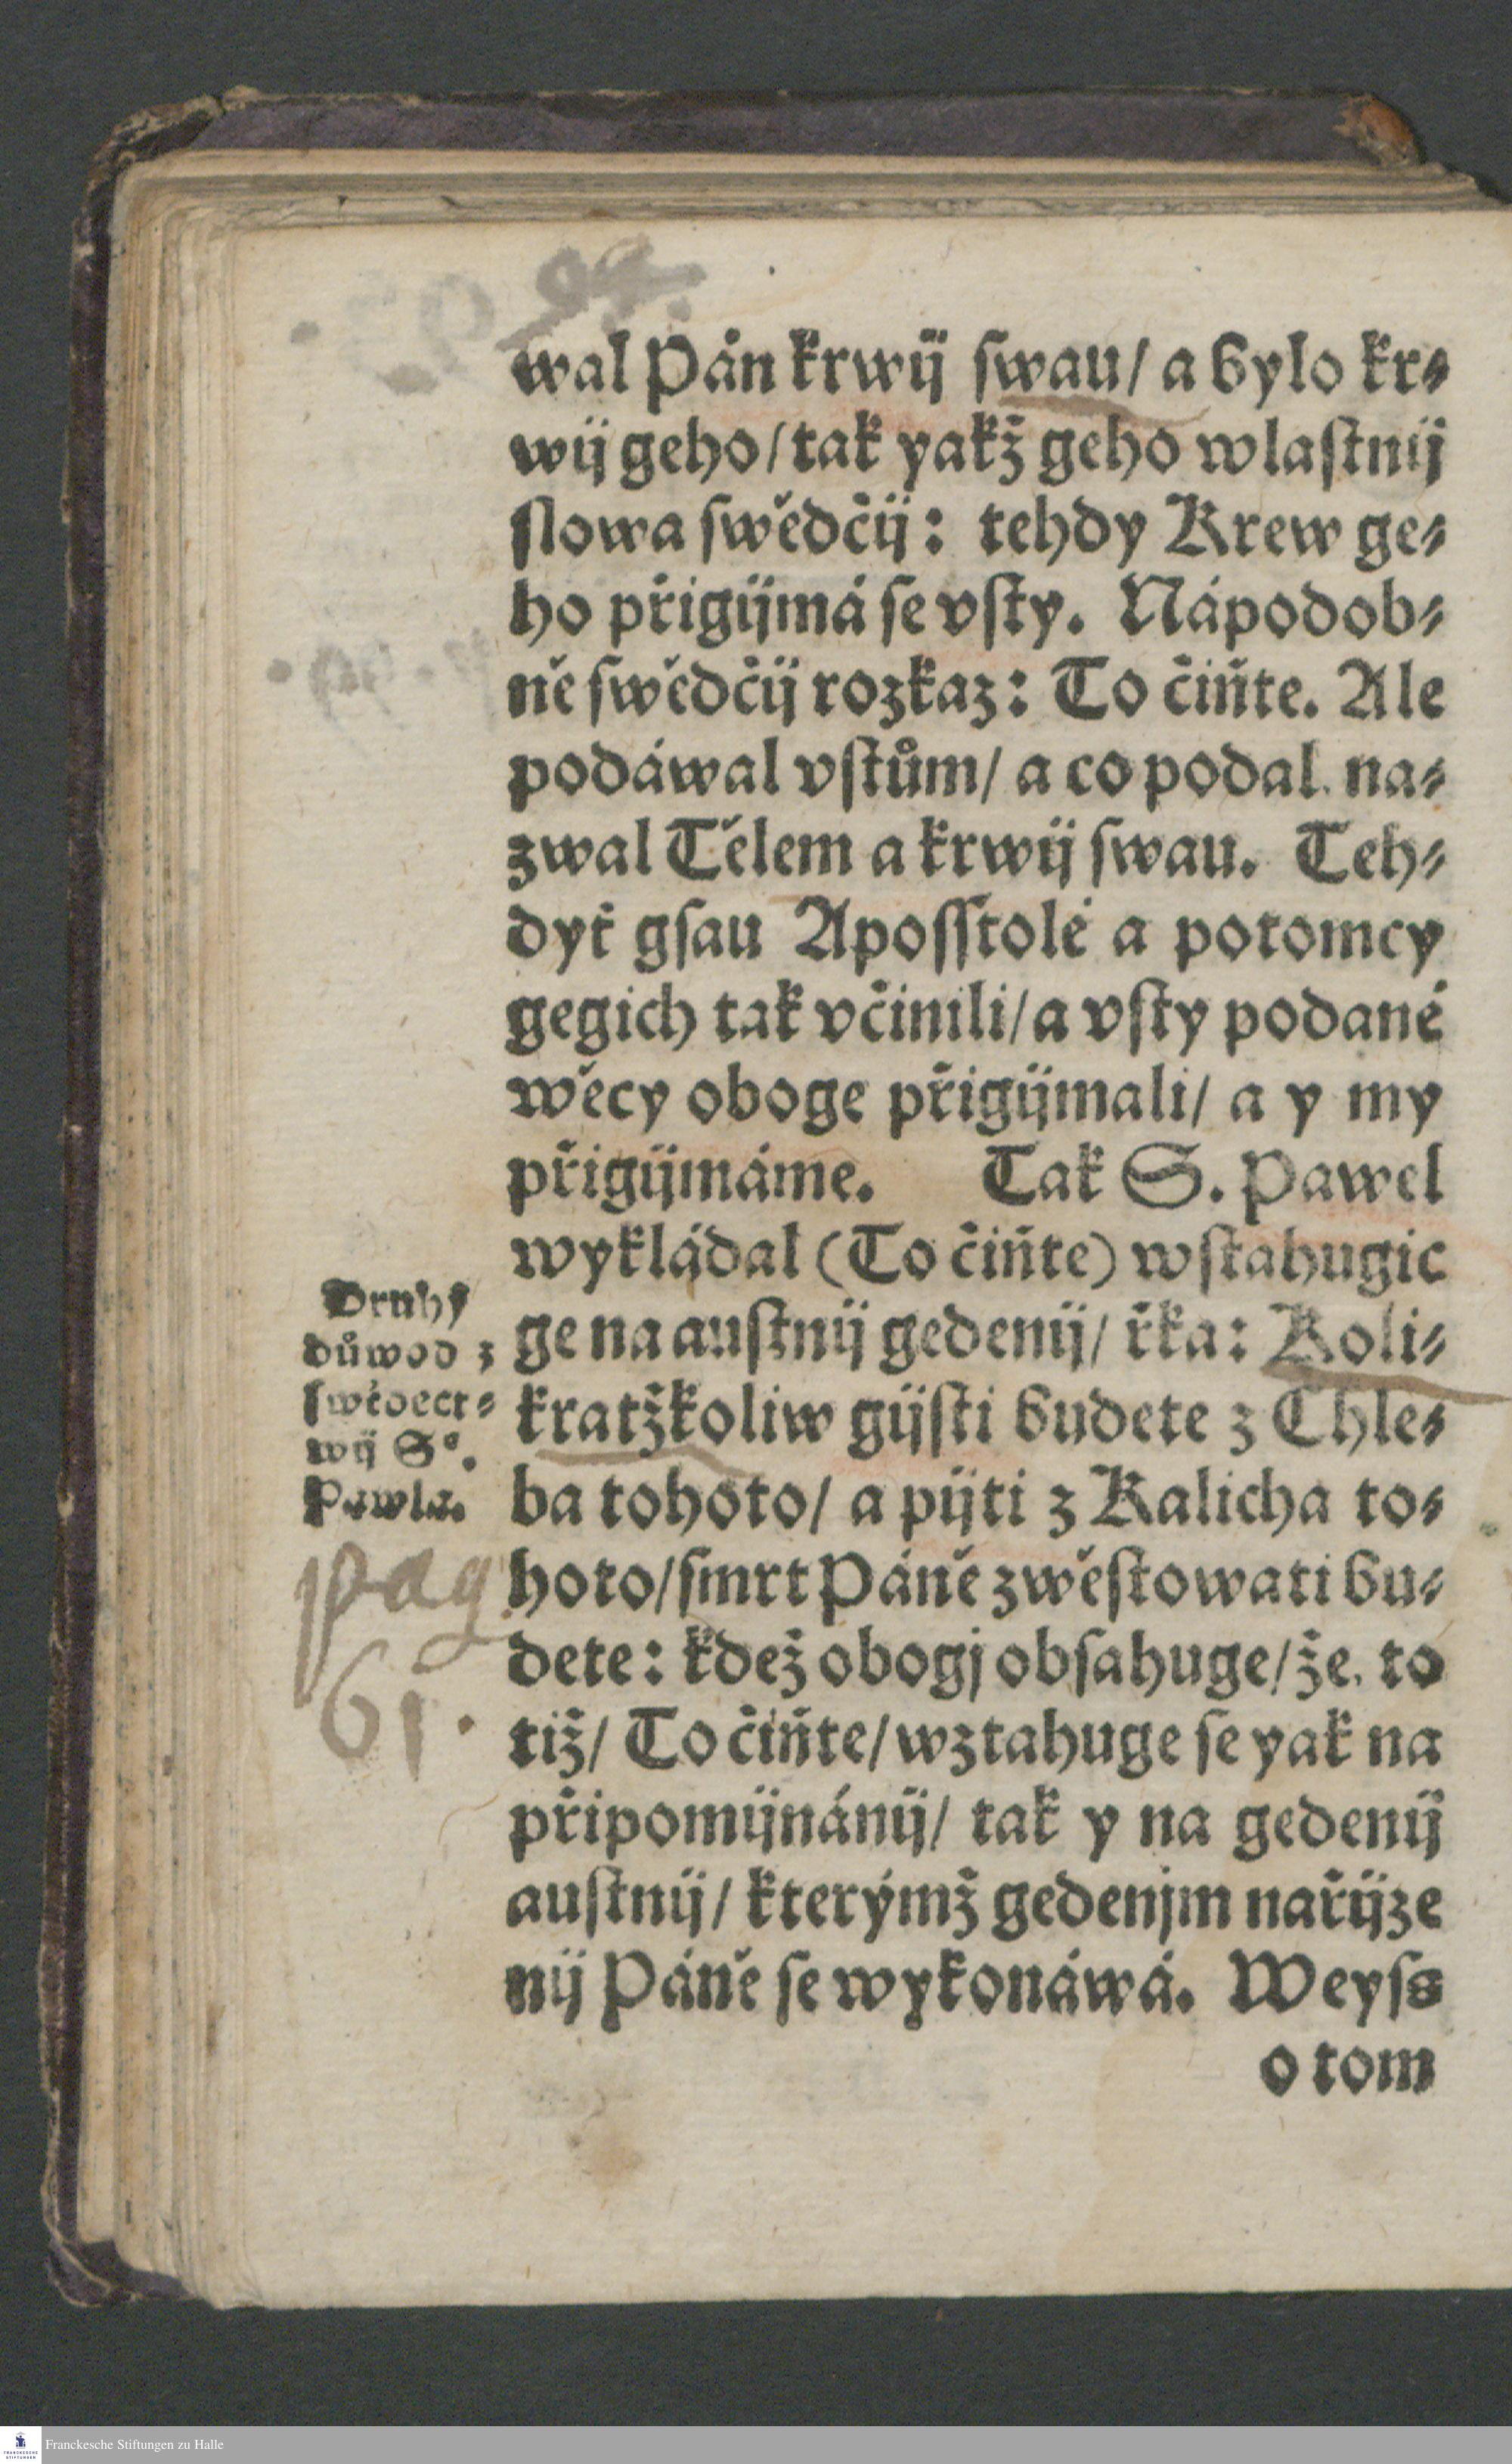 94.
wal Pán krwij swau/ a bylo kr⸗
wij geho/ tak yakž geho wlastnij
slowa swědčij: tehdy Krew ge⸗
ho přigijmá se vsty. Nápodob⸗
ně swědčij rozkaz: To čiňte. Ale
podáwal vstům/ a co podal. na⸗
zwal Tělem a krwij swau. Teh⸗
dyť gsau Aposstolé a potomcy
gegich tak včinili/ a vsty podané
wěcy oboge přigijmali/ a y my
přigijmáme. Tak S. Pawel
wykládal (To čiňte) wstahugic
ge na austnij gedenij/ řka: Koli⸗
kratžkoliw gijsti budete z Chle⸗
ba tohoto/ a pijti z Kalicha to⸗
hoto/ smrt Páně zwěstowati bu⸗
dete: kdež obogj obsahuge/ že. to
tiž/ To čiňte/ wztahuge se yak na
připomijnánij/ tak y na gedenij
austnij/ kterýmž gedenjm nařijze
nij Páně se wykonáwá. Weyss
o tom
Druhý
důwod z
swědect⸗
wij Sº.
Pawla.
pag
61.
Franckesche Stiftungen zu Halle